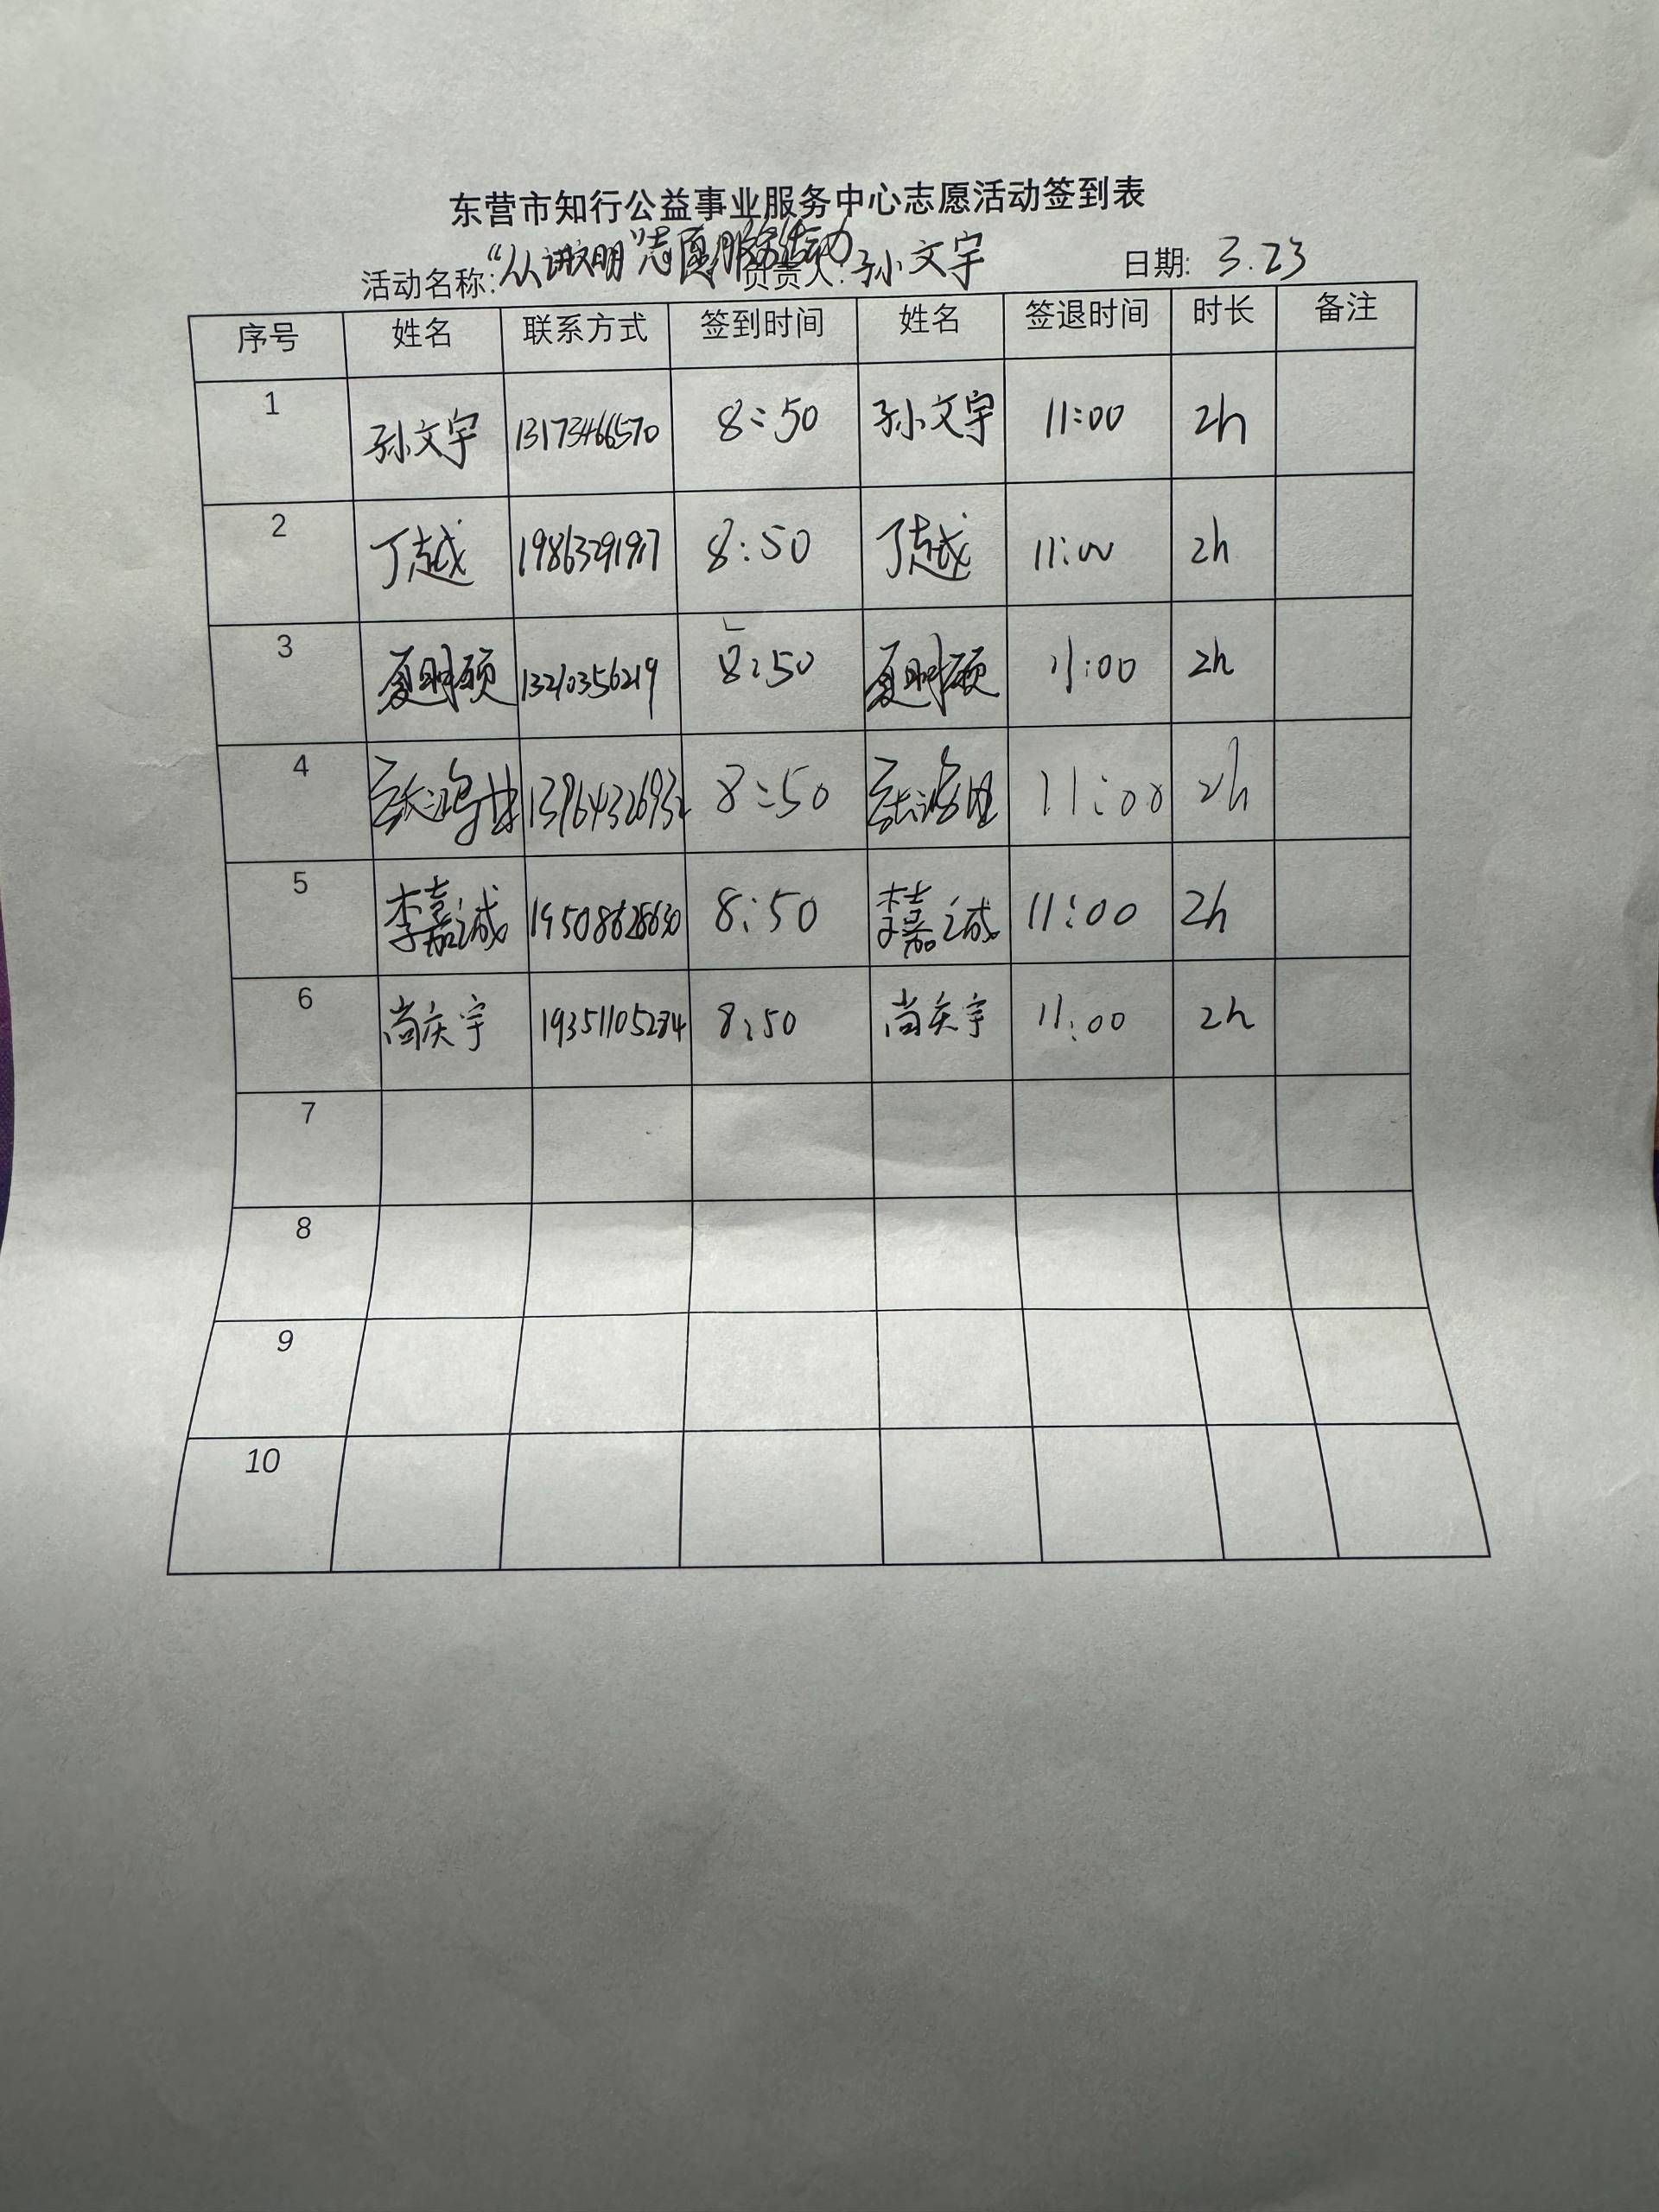 东营市知行公益事业服务中心志愿活动签到表
活动名称:“从讲文明”志愿服务活动 负责人:孙文宇 日期: 3.23
序号 姓名 联系方式 签到时间 姓名 签退时间 时长 备注
1 孙文宇 13173466570 8:50 孙文宇 11:00 2h
2 丁越 19863291917 8:50 丁越 11:00 2h
3 夏明硕 13210356219 8:50 夏明硕 11:00 2h
4 1396432693 8:50 11:00 2h
5 李嘉诚 19508628630 8:50 李嘉诚 11:00 2h
6 尚庆宇 19351105284 8:50 尚庆宇 11:00 2h
7
8
9
10